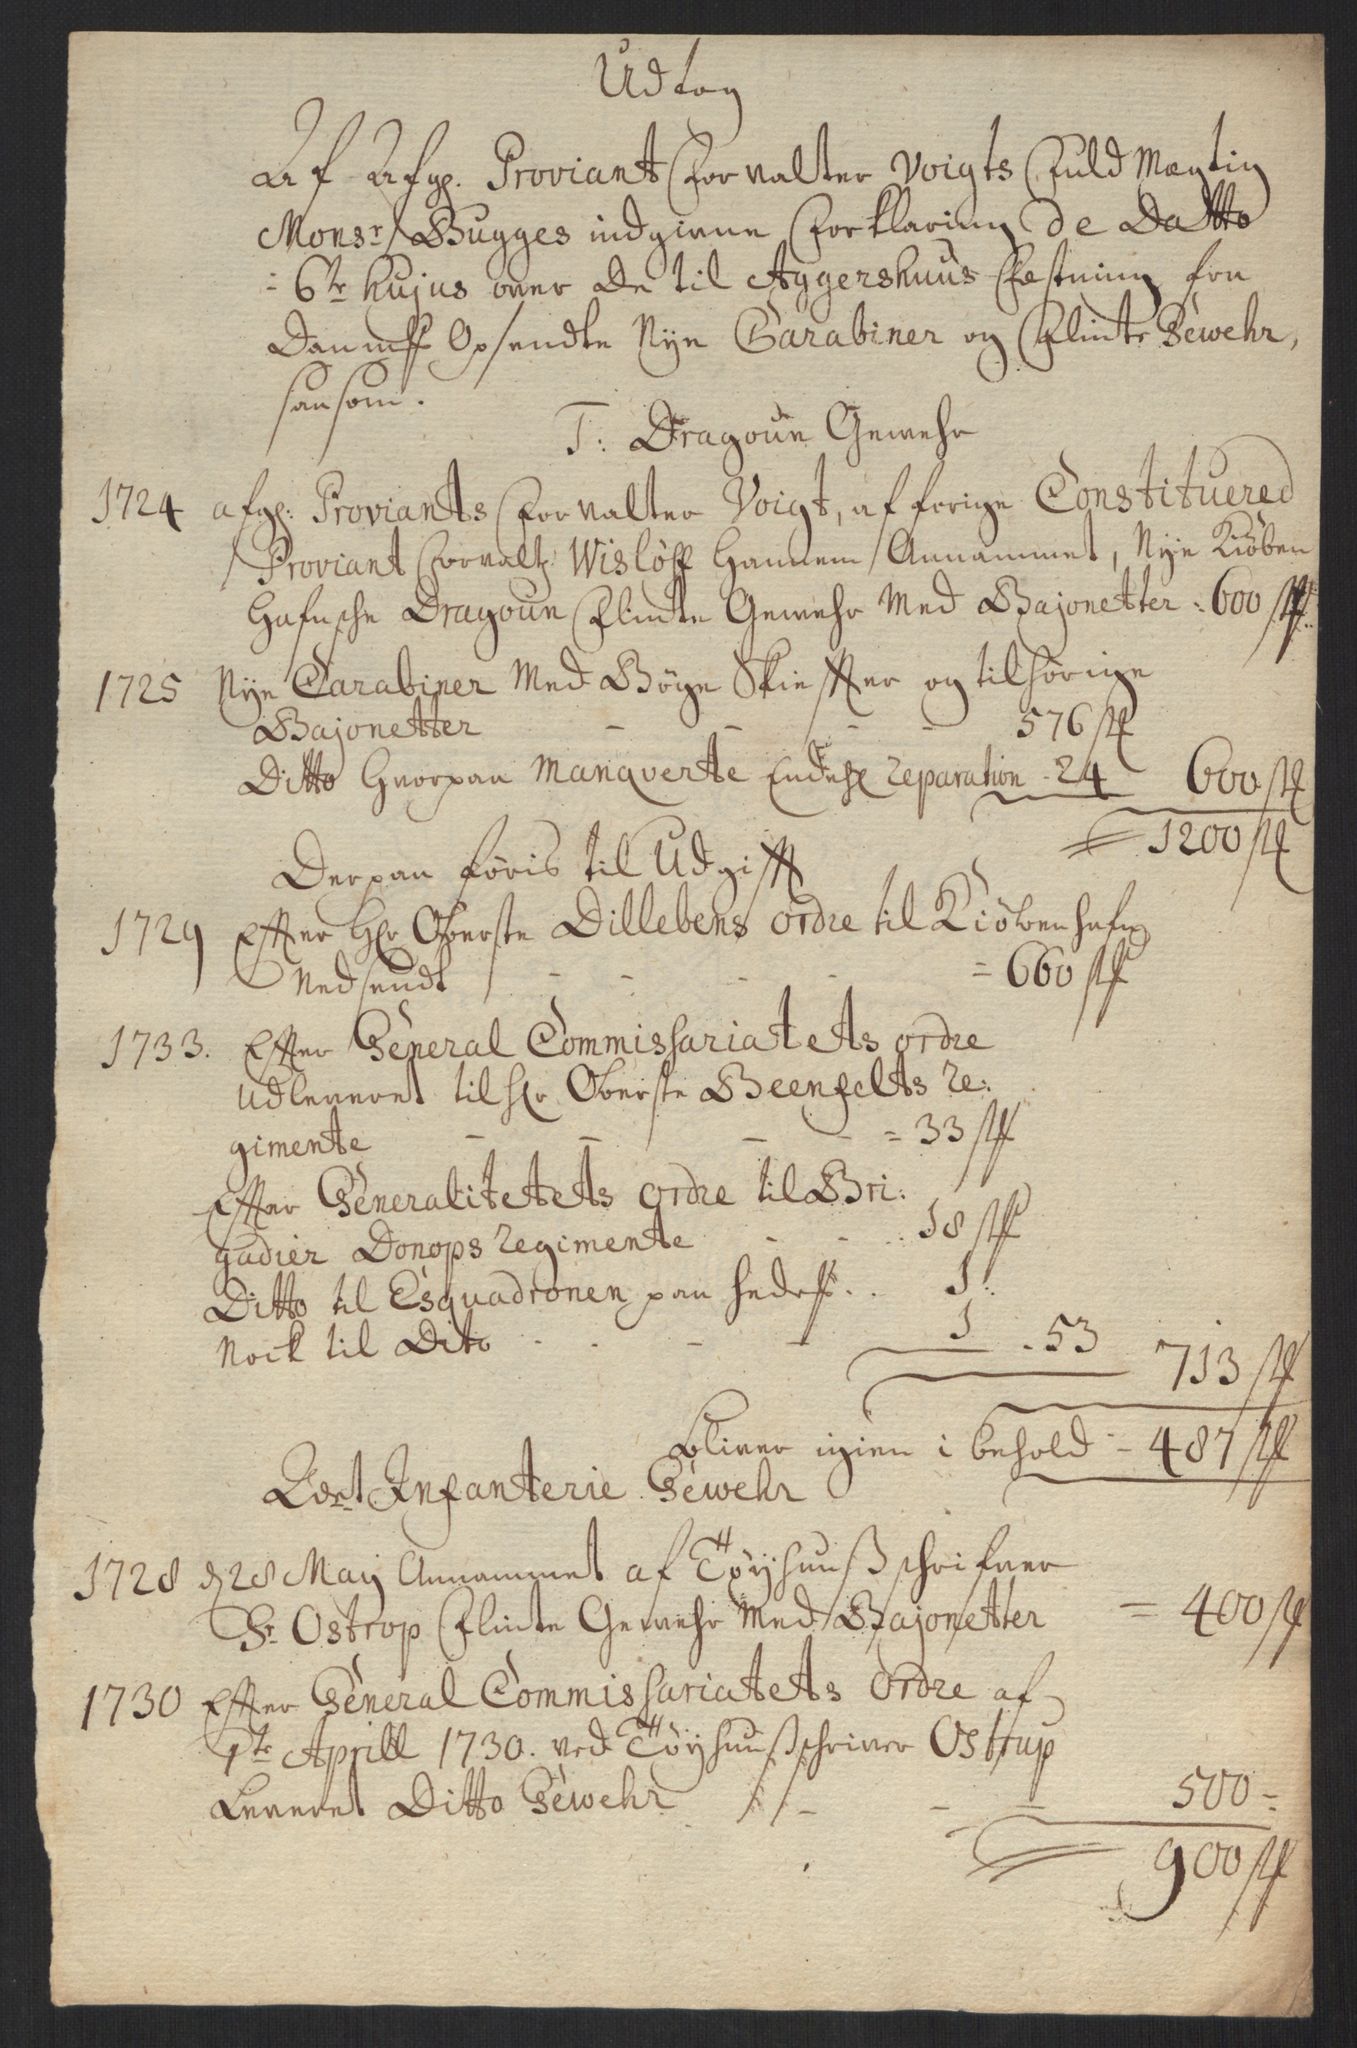 Udtog
Af Afgr. Proviant Forvalter Voigts Fuldmægtig
Monsr Bugges indgivne Forklaring de Datto
6te hujus over de til Aggershuus Fæstning fra
Danmk Opsendte Nye Carabiner og Flinte Gewehr,
saasom.
T: Dragoun Gewehr
1724 afgr: Proviants Forvalter Voigt, af forige Constituered
Proviant Forvaltr Wislöff hannem Annammet, Nye Kiöben
hafnsche Dragoun Flindte Gewehr Med Bajonetter : 600 st.
1725 Nye Carabiner Med Böge Skieffter og tilhörige
Bajonetter - - - - 576 st
Ditto hvorpaa manqverte Endehl reparation - 24 600 st
1200 st
Derpaa föris til Udgifft
1729 Effter Hr Oberste Dillebens ordre til Kiöbenhafn
Nedsendt - - - - = 660 st
1733. Effter General Commissariatets ordre
Udleveret til Hr Oberste Beenfelts Re:
gimente - - - - = 33 st
Effter Generalitetets ordre til Bri:
gadier Donops Regimente - - 18 st
Ditto til Esquadronen paa Hedesk. . 1:
Nock til Dito - - - - 1 . 53 713 st
bliver igien i behold - 487 st
Infanterie Gewehr
1728 d 28 Maij Annammet af Töyhuusschrifver
Sr Ostrop Flinte Gewehr Med Bajonetter = 400 st
1730 Effter General Commissariatets Ordre af
1te Aprill 1730. ved Töyhuusschriver Ostrup
Leveret Ditto Gewehr - - - 500 -
900 st